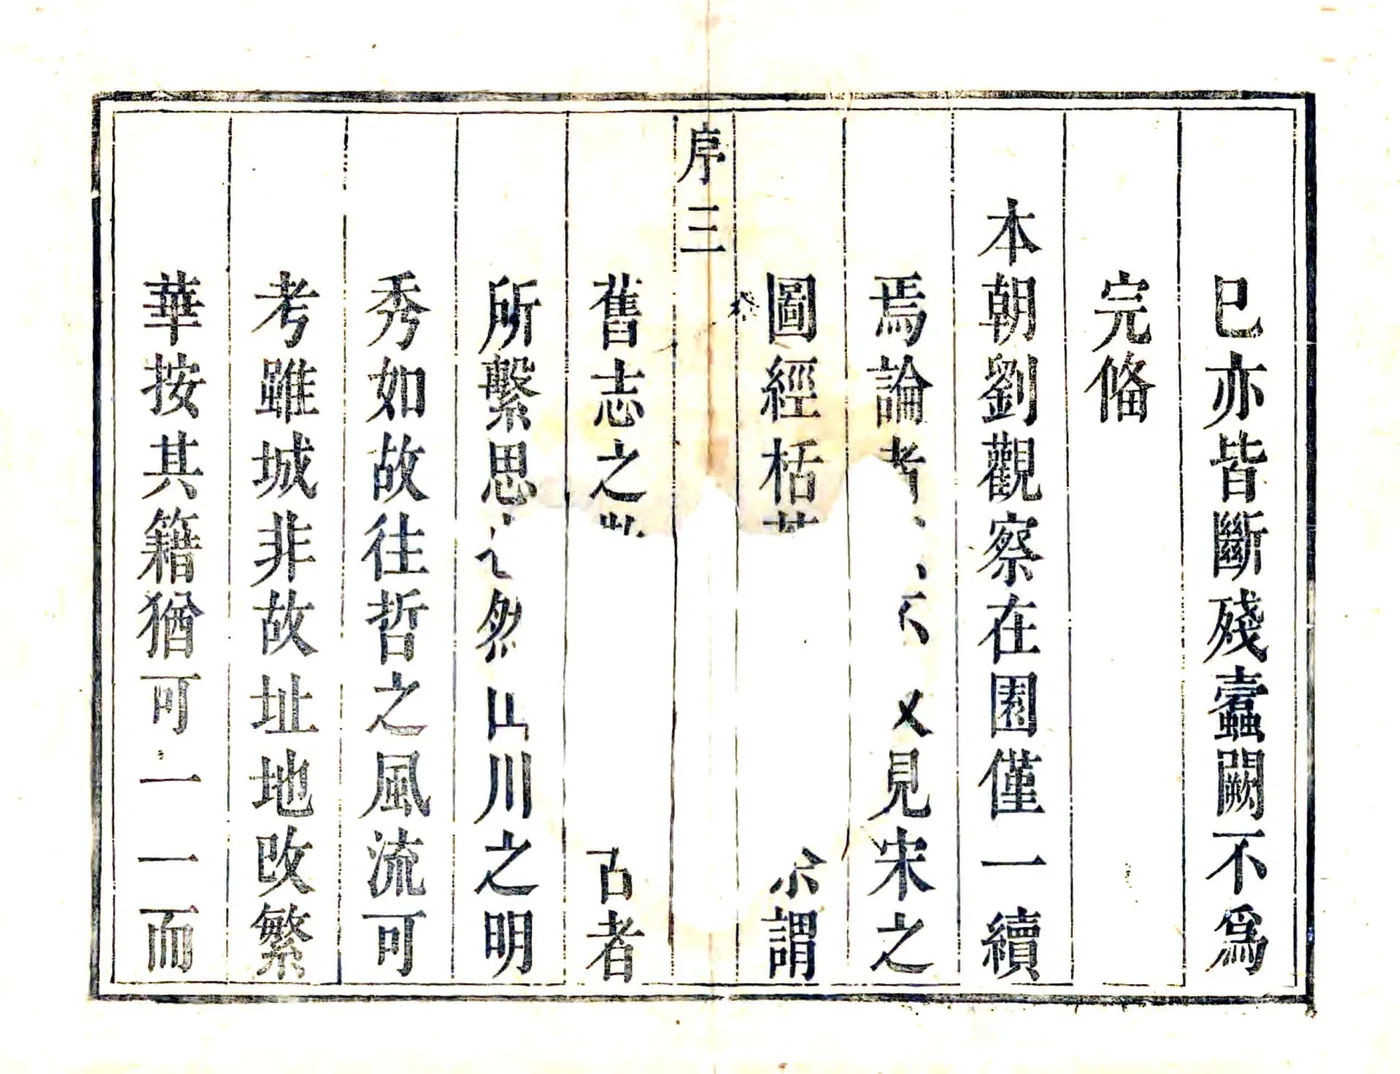 已亦皆斷殘蠧闕不爲
完俻
本朝劉觀察在園僅一續
焉論者見宋之
圖經栝謂
序三
舊志之古者
所繫思之然山川之明
秀如故往哲之風流可
考雖城非故址地改繁
華按其籍猶可一一而